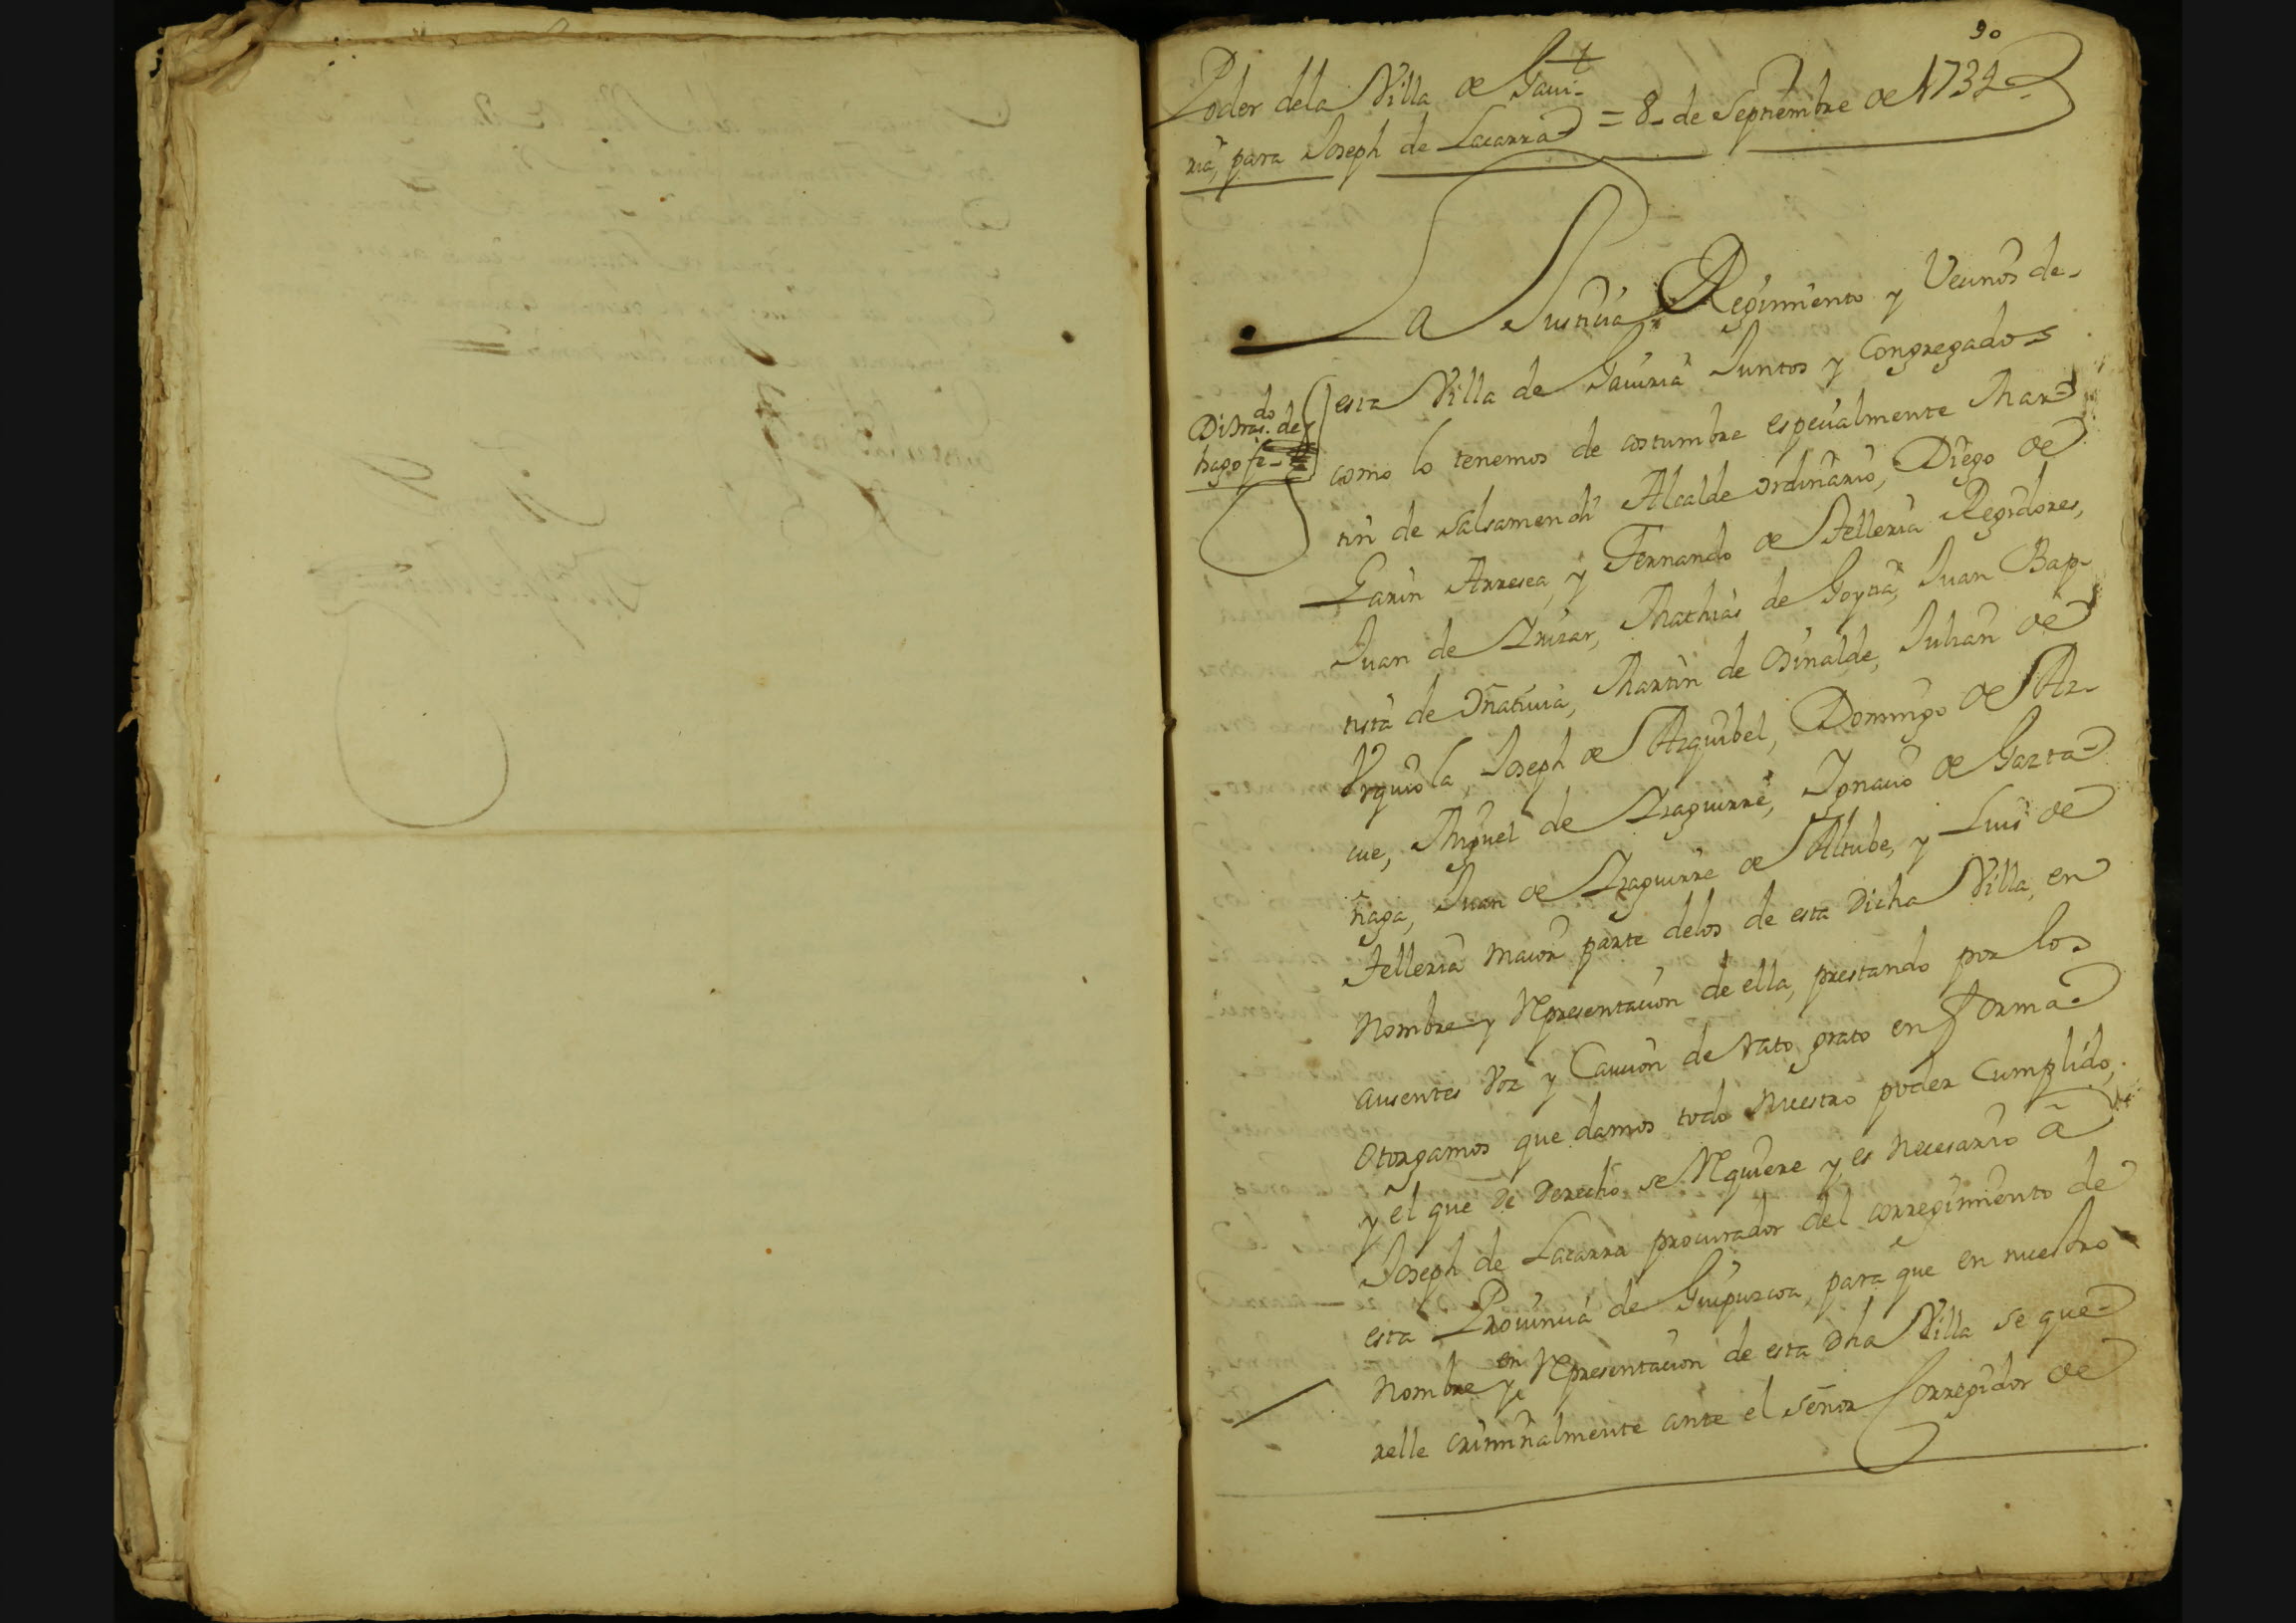 90
Poder dela Villa de Gavi-
ria, para Joseph de Lacarra = 8 de Septiembre de 1734
La Justicia Regimiento y Vecinos de-
esta Villa de Gaviria Juntos y Congregados
Di tras.do de
hago fe
como lo tenemos de costumbre especialmente Mar-
tin de Salsamendi Alcalde ordinario, Diego de
Garin Arresea, y Fernando de Telleria Regidores,
Juan de Irizar, Mathias de Goytia, Juan Bap-
tista de Oñativia, Martin de Osinalde, Julian de
Vrquiola, Joseph de Azquibel, Domingo de Az-
cue, Miguel de Izaguirre, Ignacio de Gazta-
ñaga, Juan de Izaguirre de Altube, y Luis de
Telleria maior parte delos de esta Dicha Villa, en
Nombre y Representacion de ella, prestando por los
ausentes Voz y Caucion de rato grato en forma
otorgamos que damos todo nuestro poder Cumplido,
y el que de Derecho se Requiere y es necesario â
Joseph de Lacarra procurador del corregimiento de
esta Provincia de Guipuzcoa, para que en nuestro
Nombre y en Representacion de esta Dha Villa se que-
relle criminalmente ante el señor Corregidor de